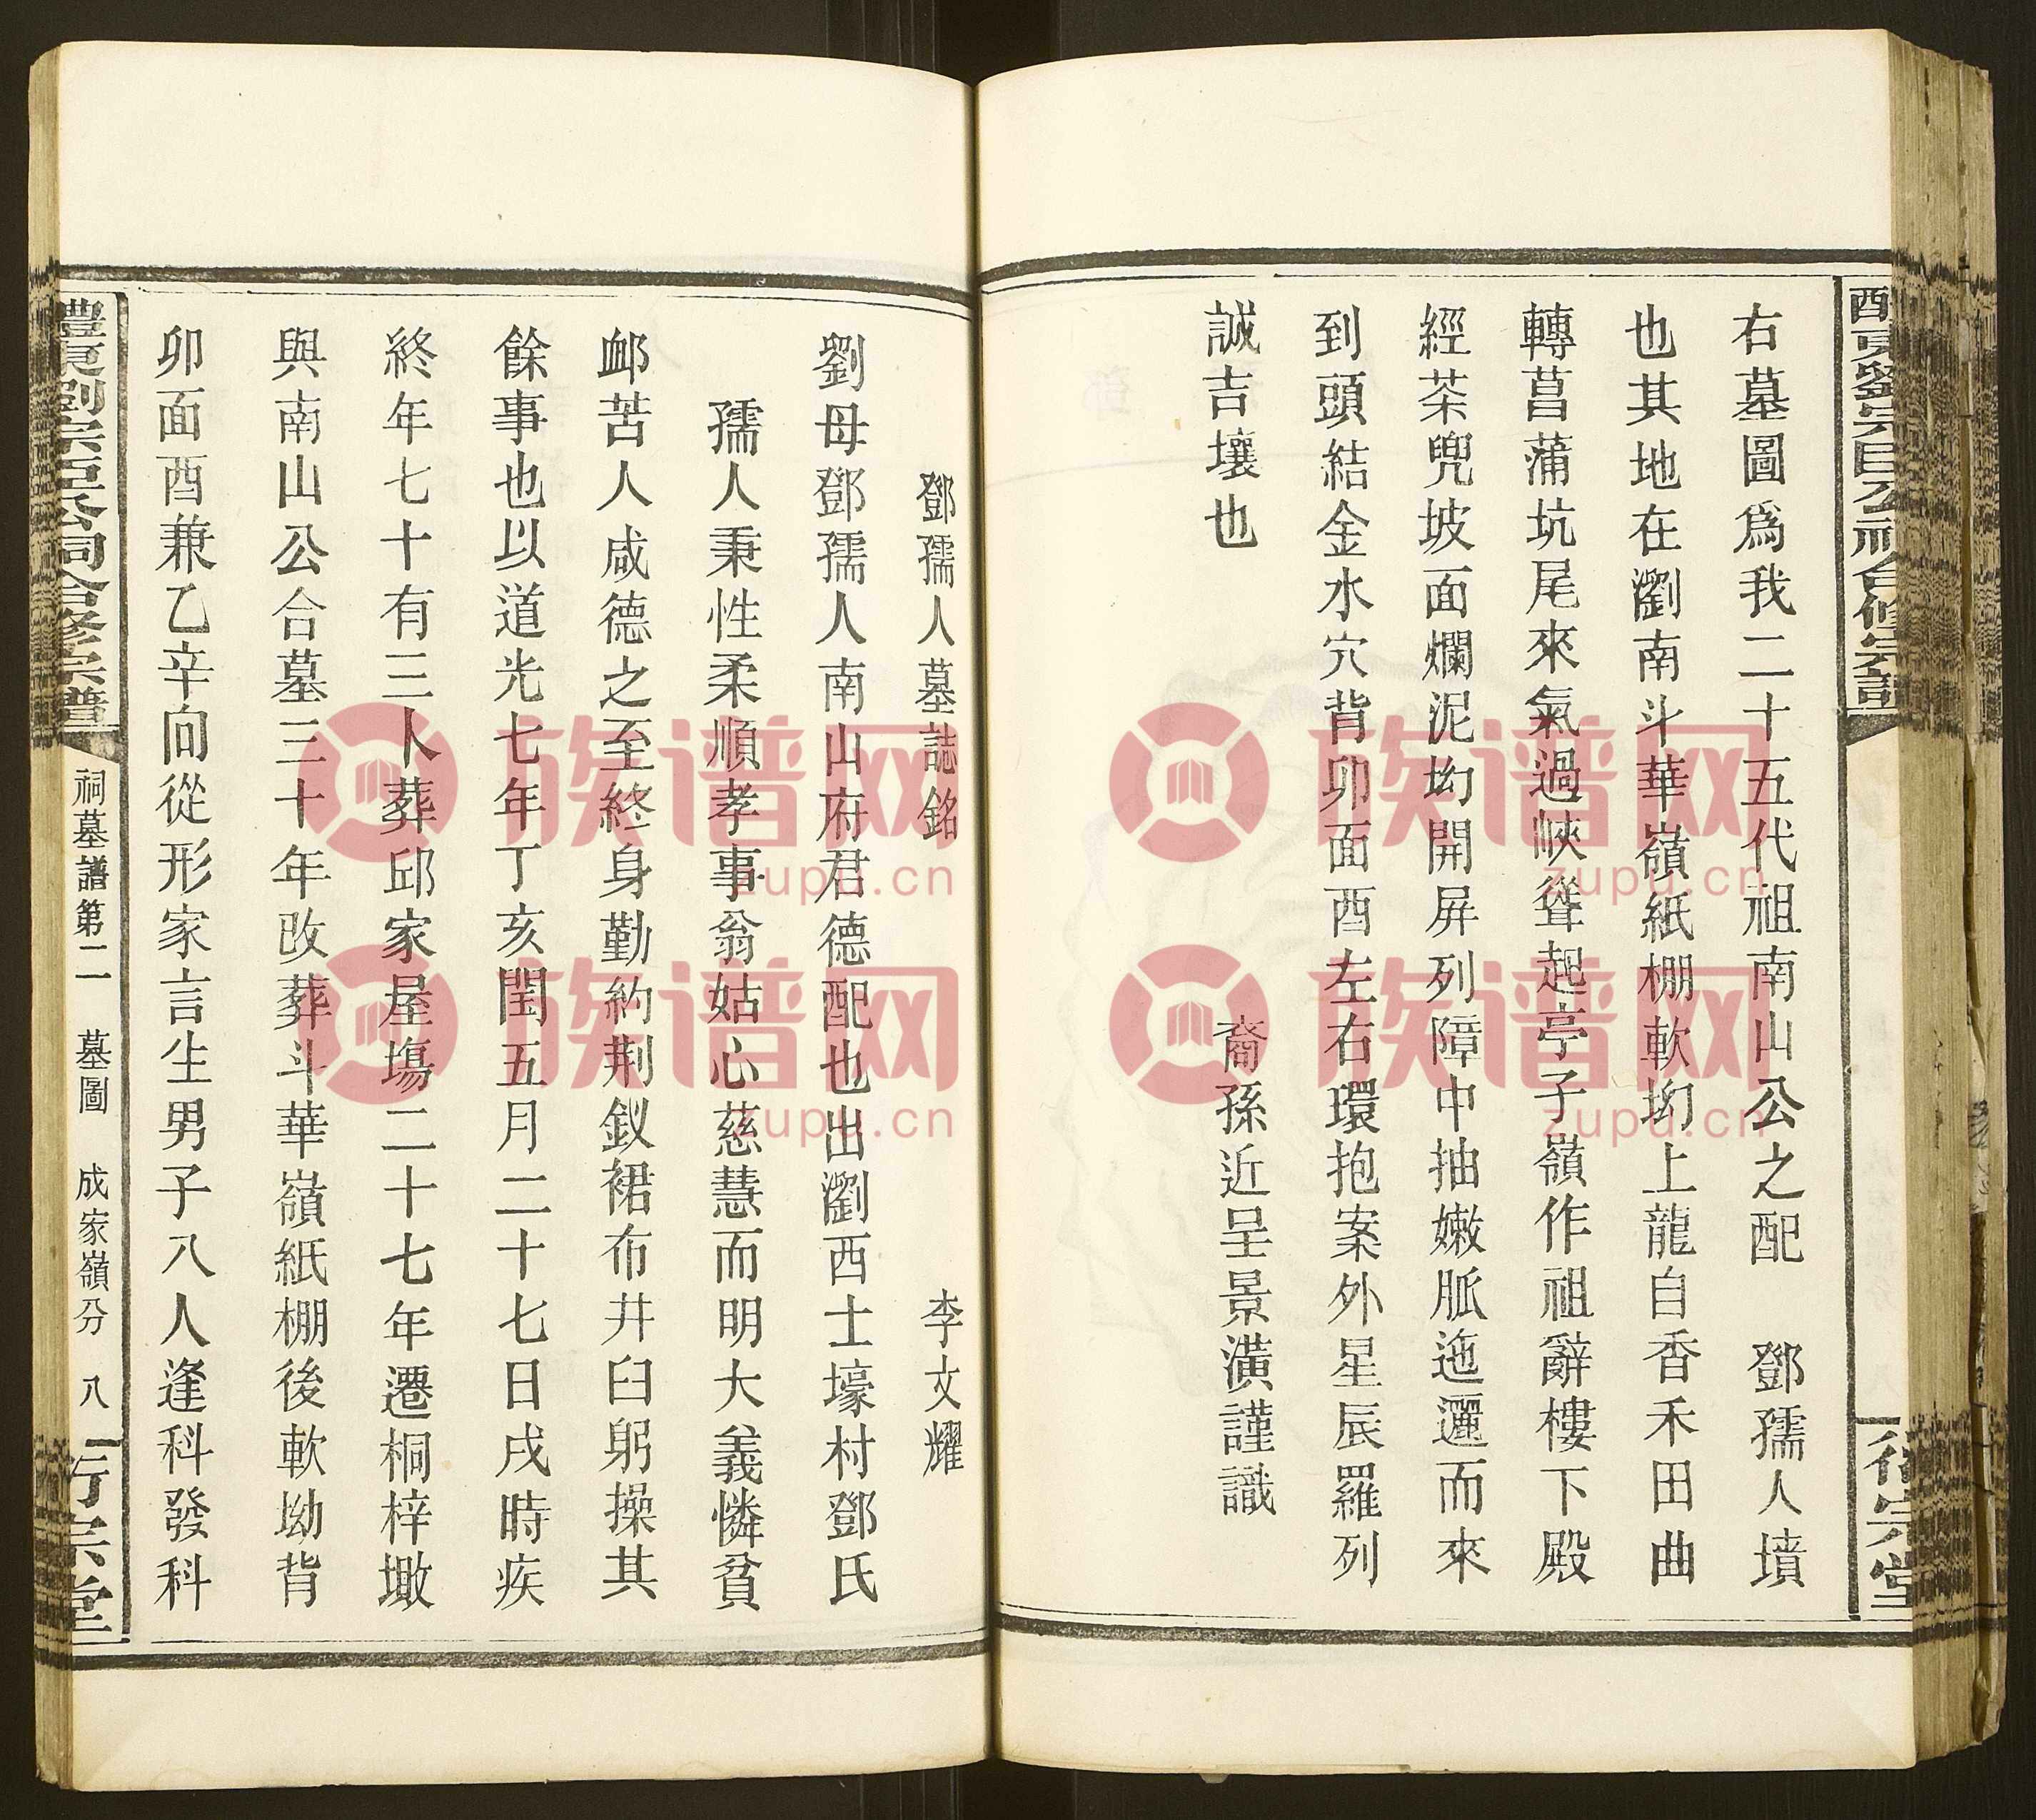 右墓圖爲我二十五代祖南山公之配　鄧孺人墳
也其地在瀏南斗華嶺紙棚軟坳上龍自香禾田曲
轉菖蒲坑尾來氣過峽聳起亭子嶺作祖辭樓下殿
經茶兜坡面爛泥坳開屏列障中抽嫩脈迤邐而來
到頭結金水穴背卯面酉左右環抱案外星辰羅列
誠吉壤也
裔孫近呈景潢謹識
鄧孺人墓誌銘　李文耀
劉母鄧孺人南山府君德配也出瀏西士壕村鄧氏
孺人秉性柔順孝事翁姑心慈慧而明大義憐貧
卹苦人咸德之至終身勤約荆釵裙布井臼躬操其
餘事也以道光七年丁亥閏五月二十七日戌時疾
終年七十有三人葬邱家屋塲二十七年遷桐梓墩
與南山公合墓三十年改葬斗華嶺紙棚後軟坳背
卯面酉兼乙辛向從形家言生男子八人逢科發科
醴東劉宗臣公祠合修宗譜
祠墓譜第二　墓圖　成家嶺分　八
衍宗堂
族谱网
zupu.cn
族谱网
zupu.cn
族谱网
zupu.cn
族谱网
zupu.cn